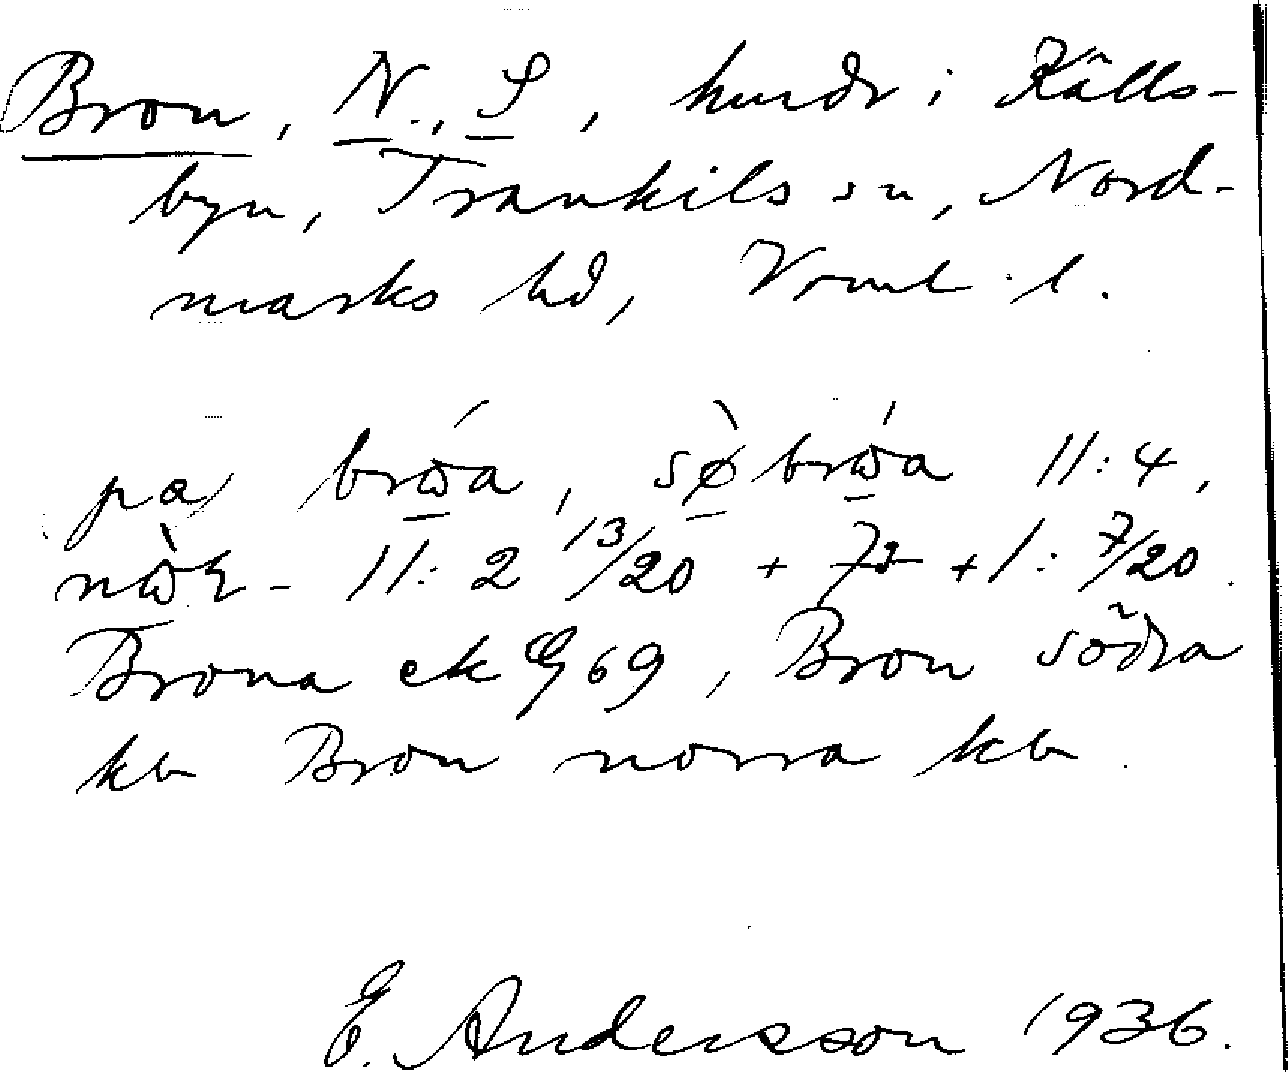 Bron, N., S, hmdr i Källs-
byn, Trankils sn, Nord-
marks hd, Vrml. l.
pa brωa, sø̀brωa 11:4,
nωʅ- 11:2 13/20 + + 1: 7/20.
Brona ek G 69, Bron södra
kb Bron norra kb.
E. Andersson 1936.